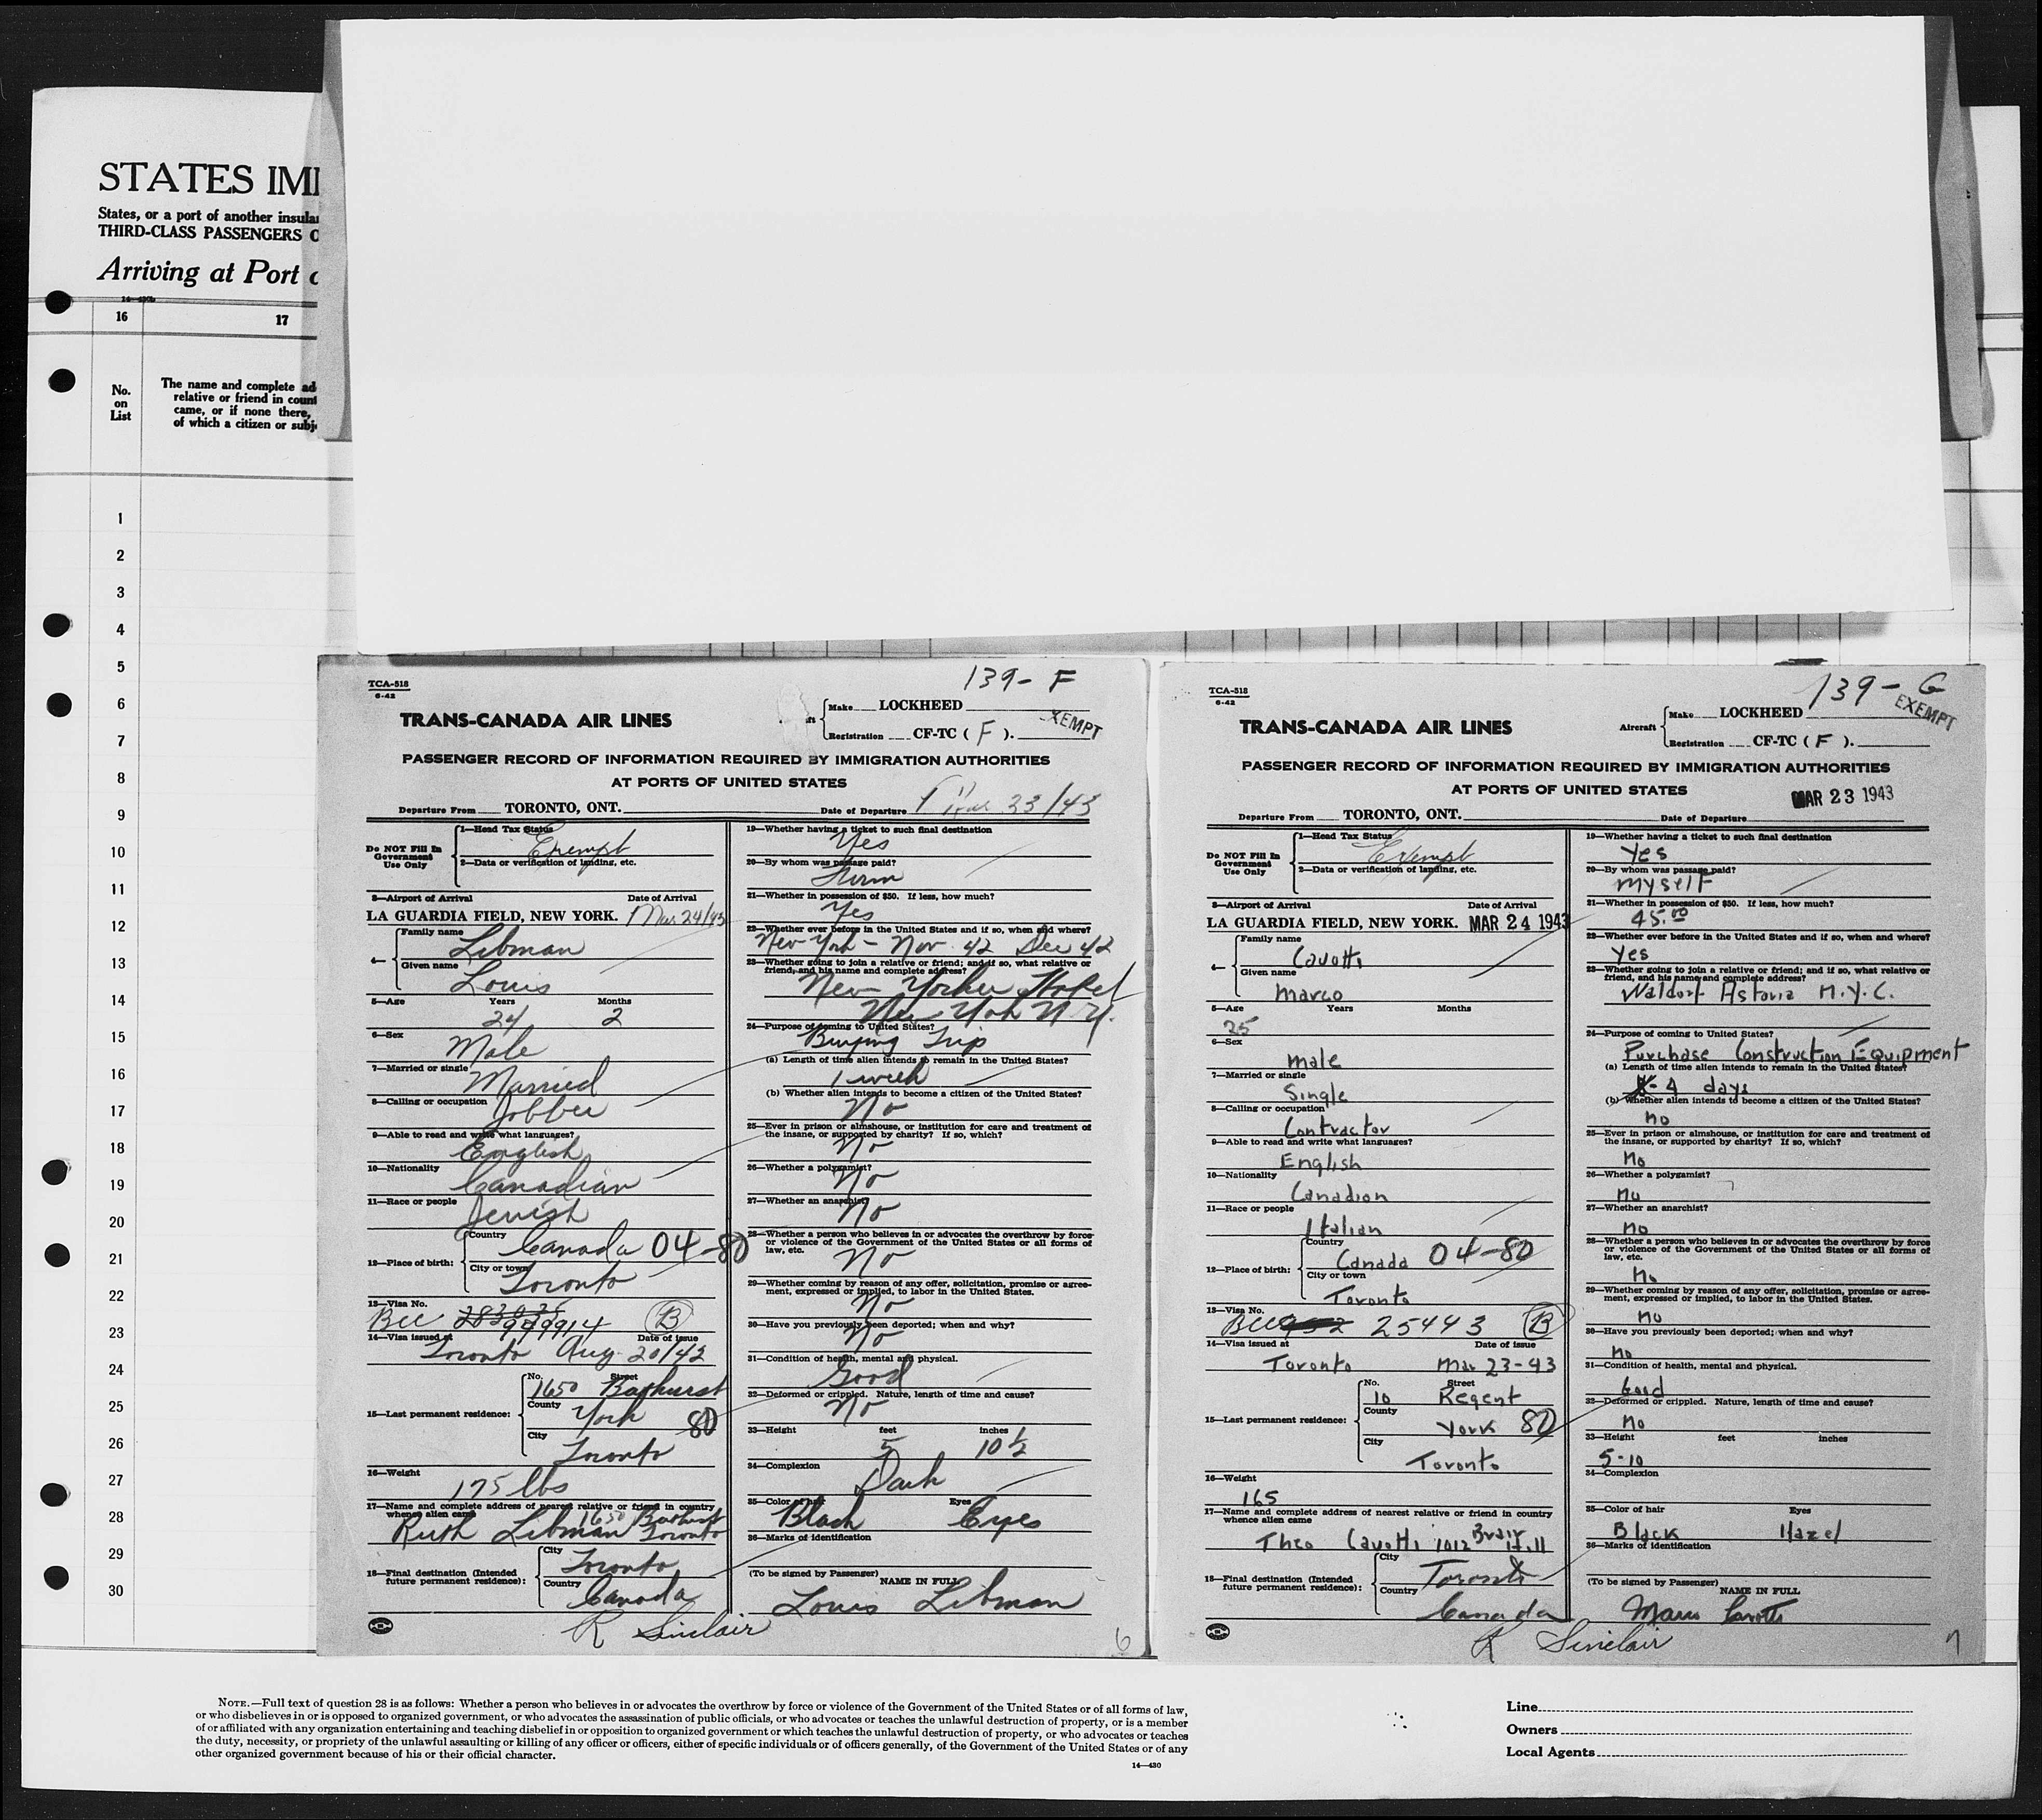 STATES IMI
States, or a port of another insula
THIRD-CLASS PASSENGERS O
Arriving at Port o
16
17
No.
on
List
The name and complete ad
relative or friend in count
came, or if none there,
of which a citizen or subj
1
2
3
4
5
6
7
8
9
10
11
12
13
14
15
16
17
18
19
20
21
22
23
24
25
26
27
28
29
30
139- F
TCA-518
6-42
TRANS-CANADA AIR LINES
Make LOCKHEED
Registration CF-TC ( F ).
XEMPT
PASSENGER RECORD OF INFORMATION REQUIRED BY IMMIGRATION AUTHORITIES
AT PORTS OF UNITED STATES
Departure From TORONTO, ONT. Date of Departure 23/43
Do NOT Fill In
Government
Use Only
1—Head Tax Status
Exempt
2—Data or verification of landing, etc.
3—Airport of Arrival Date of Arrival
LA GUARDIA FIELD, NEW YORK. Mar 24/43
4— Family name
Libman
Given name
Louis
5—Age Years Months
24 2
6—Sex
Male
7—Married or single
Married
8—Calling or occupation
Jobber
9—Able to read and write what languages?
English
10—Nationality
Canadian
11—Race or people
Jewish
12—Place of birth: Country
Canada 04-80
City or town
Toronto
13—Visa No.
Bcc 283035 999914 B
14—Visa issued at Date of issue
Toronto Aug. 20/42
15—Last permanent residence: No. Street
1650 Bathurst
County
York 80
City
Toronto
16—Weight
175 lbs
17—Name and complete address of nearest relative or friend in country
whence alien came
1650 Bathurst
Ruth Libman Toronto
18—Final destination (Intended
future permanent residence): City
Toronto
Country
Canada
R Sinclair
19—Whether having a ticket to such final destination
Yes
20—By whom was passage paid?
Firm
21—Whether in possession of $50. If less, how much?
Yes
22—Whether ever before in the United States and if so, when and where?
New York - Nov. 42 Dec 42
23—Whether going to join a relative or friend; and if so, what relative or
friend, and his name and complete address?
New Yorker Hotel
New York N.Y.
24—Purpose of coming to United States?
Buying Trip
(a) Length of time alien intends to remain in the United States?
1 week
(b) Whether alien intends to become a citizen of the United States?
No
25—Ever in prison or almshouse, or institution for care and treatment of
the insane, or supported by charity? If so, which?
No
26—Whether a polygamist?
No
27—Whether an anarchist?
No
28—Whether a person who believes in or advocates the overthrow by force
or violence of the Government of the United States or all forms of
law, etc.
No
29—Whether coming by reason of any offer, solicitation, promise or agree-
ment, expressed or implied, to labor in the United States.
No
30—Have you previously been deported; when and why?
No
31—Condition of health, mental and physical.
Good
32—Deformed or crippled. Nature, length of time and cause?
No
33—Height feet inches
5 10 ½
34—Complexion
Dark
35—Color of hair Eyes
Black Eyes
36—Marks of identification
(To be signed by Passenger)
NAME IN FULL
Louis Libman
6
139- G
TCA-518
6-42
TRANS-CANADA AIR LINES
Aircraft Make LOCKHEED
Registration CF-TC ( F ).
EXEMPT
PASSENGER RECORD OF INFORMATION REQUIRED BY IMMIGRATION AUTHORITIES
AT PORTS OF UNITED STATES
MAR 23 1943
Departure From TORONTO, ONT. Date of Departure
Do NOT Fill In
Government
Use Only
1—Head Tax Status
Exempt
2—Data or verification of landing, etc.
3—Airport of Arrival Date of Arrival
LA GUARDIA FIELD, NEW YORK. MAR 24 1943
4— Family name
Cavotti
Given name
Marco
5—Age Years Months
25
6—Sex
male
7—Married or single
Single
8—Calling or occupation
Contractor
9—Able to read and write what languages?
English
10—Nationality
Canadian
11—Race or people
Italian
12—Place of birth: Country
Canada 04-80
City or town
Toronto
13—Visa No.
BCC 25443 B
14—Visa issued at Date of issue
Toronto Mar 23-43
15—Last permanent residence: No. Street
10 Regent
County
York 80
City
Toronto
16—Weight
165
17—Name and complete address of nearest relative or friend in country
whence alien came
Theo Cavotti 1012 Briar Hill
18—Final destination (Intended
future permanent residence): City
Toronto
Country
Canada
R Sinclair
19—Whether having a ticket to such final destination
Yes
20—By whom was passage paid?
myself
21—Whether in possession of $50. If less, how much?
45.00
22—Whether ever before in the United States and if so, when and where?
Yes
23—Whether going to join a relative or friend; and if so, what relative or
friend, and his name and complete address?
Waldorf Astoria N.Y.C.
24—Purpose of coming to United States?
Purchase Construction Equipment
(a) Length of time alien intends to remain in the United States?
4 days
(b) Whether alien intends to become a citizen of the United States?
no
25—Ever in prison or almshouse, or institution for care and treatment of
the insane, or supported by charity? If so, which?
No
26—Whether a polygamist?
No
27—Whether an anarchist?
no
28—Whether a person who believes in or advocates the overthrow by force
or violence of the Government of the United States or all forms of
law, etc.
No
29—Whether coming by reason of any offer, solicitation, promise or agree-
ment, expressed or implied, to labor in the United States.
no
30—Have you previously been deported; when and why?
No
31—Condition of health, mental and physical.
Good
32—Deformed or crippled. Nature, length of time and cause?
no
33—Height feet inches
5-10
34—Complexion
35—Color of hair Eyes
Black Hazel
36—Marks of identification
(To be signed by Passenger)
NAME IN FULL
Marco Cavotti
7
NOTE.—Full text of question 28 is as follows: Whether a person who believes in or advocates the overthrow by force or violence of the Government of the United States or of all forms of law,
or who disbelieves in or is opposed to organized government, or who advocates the assassination of public officials, or who advocates or teaches the unlawful destruction of property, or is a member
of or affiliated with any organization entertaining and teaching disbelief in or opposition to organized government or which teaches the unlawful destruction of property, or who advocates or teaches
the duty, necessity, or propriety of the unlawful assaulting or killing of any officer or officers, either of specific individuals or of officers generally, of the Government of the United States or of any
other organized government because of his or their official character.
14—430
Line
Owners
Local Agents